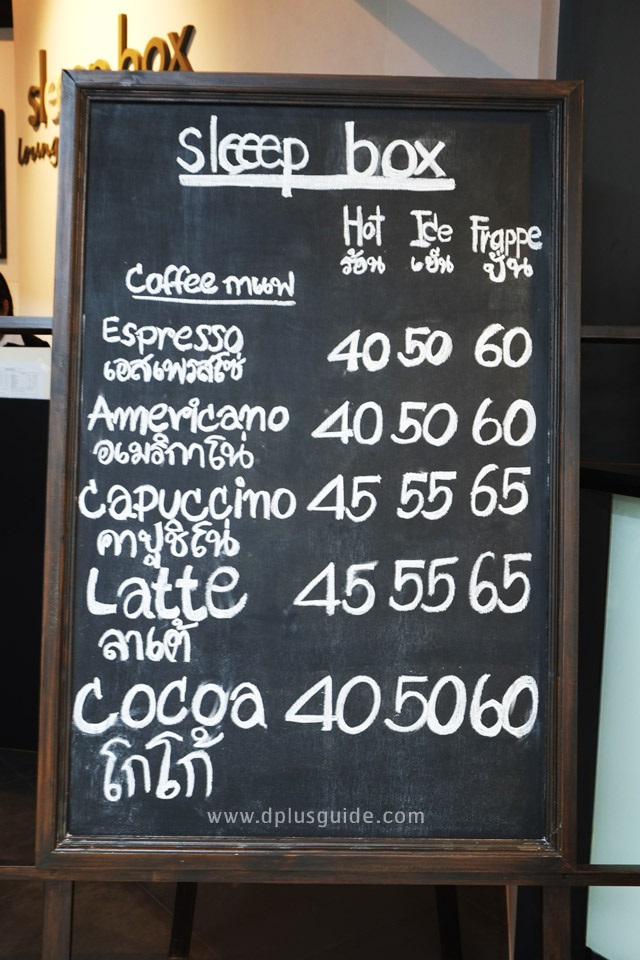 sleep box
sleeep box
Hot Ice Frappe
ร้อน เย็น ปั่น
Coffee กาแฟ
Espresso 40 50 60
เอสเพรสโซ่
Americano 40 50 60
อเมริกาโน่
Capuccino 45 55 65
คาปูชิโน่
Latte 45 55 65
ลาเต้
Cocoa 40 50 60
โกโก้
www.dplusguide.com